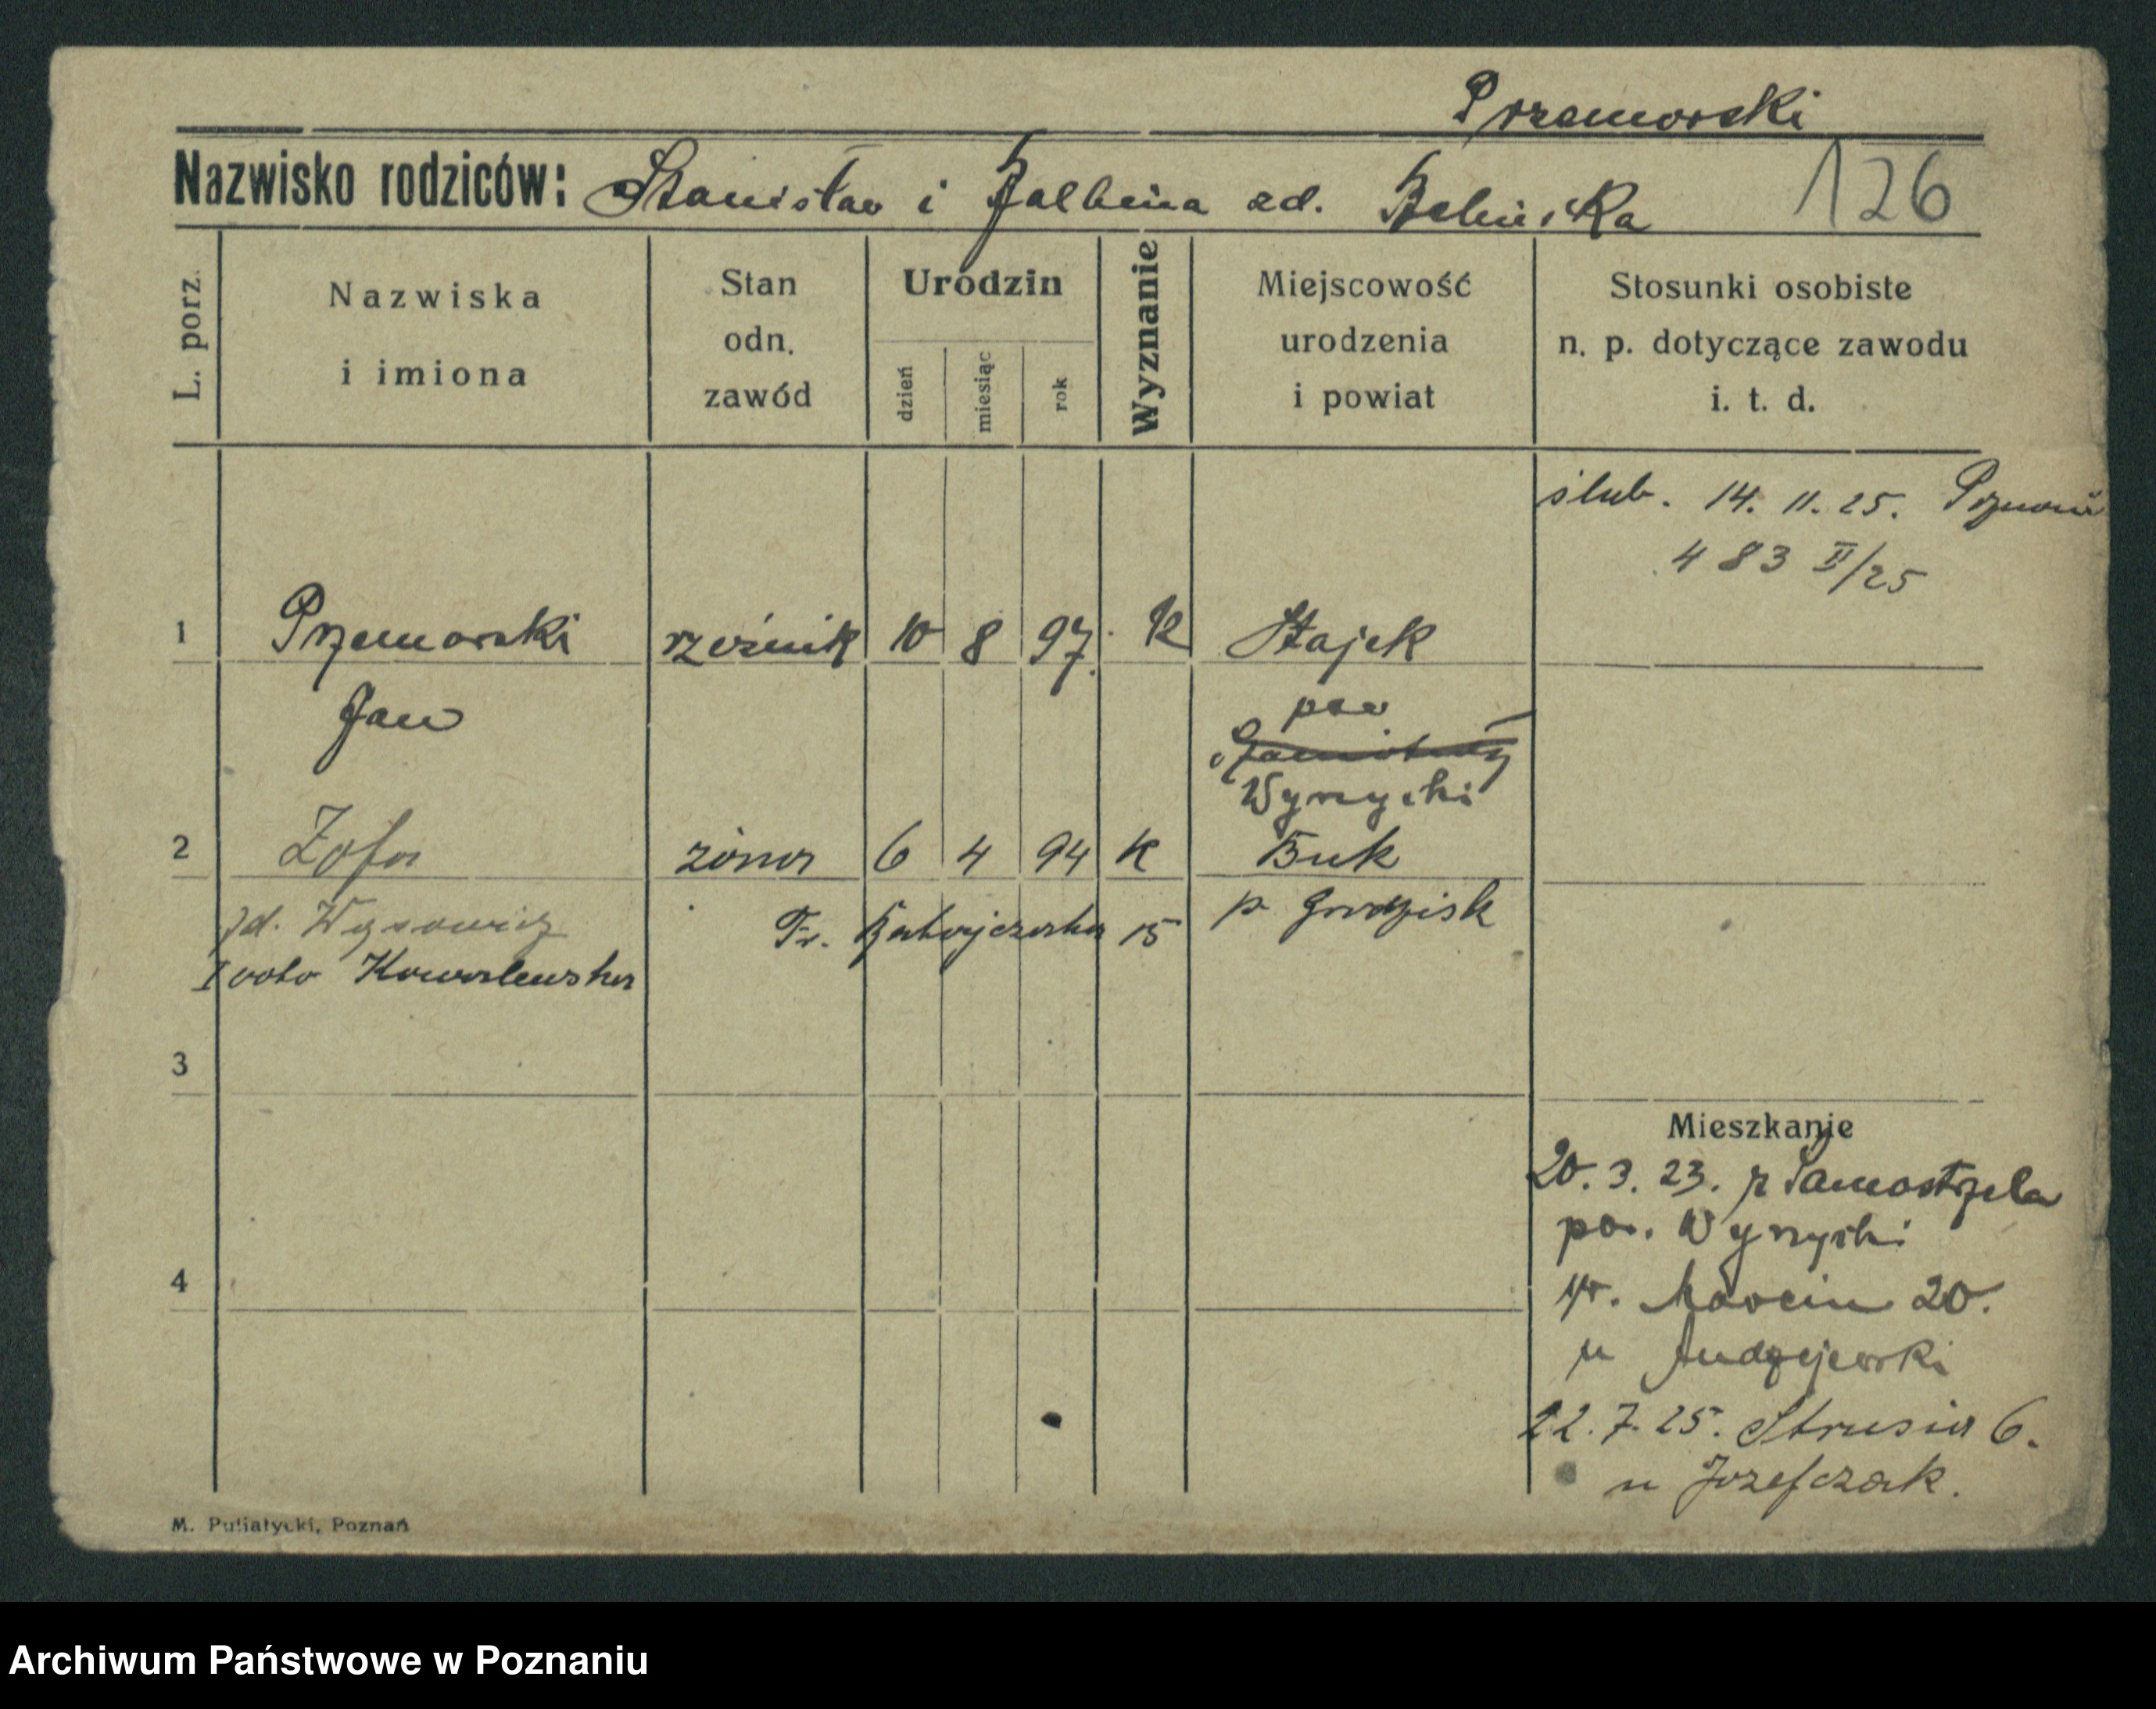 Przemorski
Nazwisko rodziców: Stanisław i Balbina zd.
126
L. porz.
Nazwiska
i imiona
Stan
odn.
zawód
Urodzin
dzień
miesiąc
rok
Wyznanie
Miejscowość
urodzenia
i powiat
Stosunki osobiste
n. p. dotyczące zawodu
i. t. d.
ślub. 14. 11. 25. Poznań
483 II/25
1 Przemorski rzeźnik 10 8 97. K
Jan
pow
Wyrzyski
2 Zofia żona 6 4 94 K Buk
zd. Fr. 15 p. Grodzisk
I voto Kowalewska
3
4
Mieszkanie
20. 3. 23. z Samostrzela
pow. Wyrzyski
św. Marcin 20.
u Andrzejewski
22. 7. 25. Strusia 6.
u Józefczak.
M. Putiatycki, Poznań
Archiwum Państwowe w Poznaniu